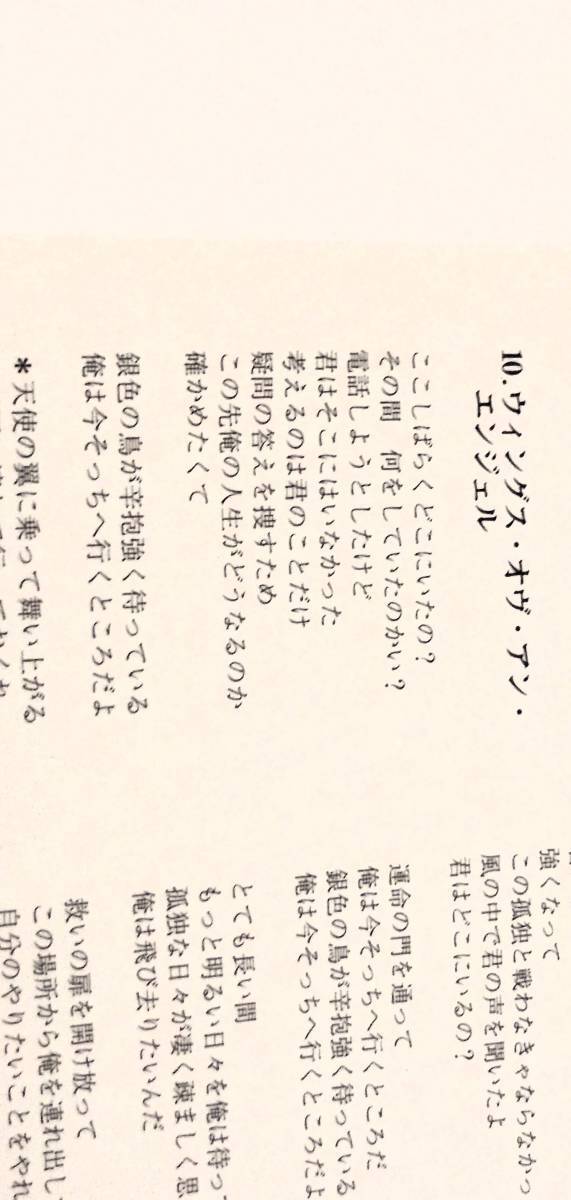 10. ウィングス・オヴ・アン・
エンジェル
ここしばらくどこにいたの？
その間　何をしていたのかい？
電話しようとしたけど
君はそこにはいなかった
考えるのは君のことだけ
疑問の答えを捜すため
この先俺の人生がどうなるのか
確かめたくて
銀色の鳥が辛抱強く待っている
俺は今そっちへ行くところだよ
＊天使の翼に乗って舞い上がる
強くなって
この孤独と戦わなきゃならなかっ
風の中で君の声を聞いたよ
君はどこにいるの？
運命の門を通って
俺は今そっちへ行くところだ
銀色の鳥が辛抱強く待っている
俺は今そっちへ行くところだよ
とても長い間
もっと明るい日々を俺は待っ
孤独な日々が凄く疎ましく思
俺は飛び去りたいんだ
救いの扉を開け放って
この場所から俺を連れ出し
自分のやりたいことをやれ